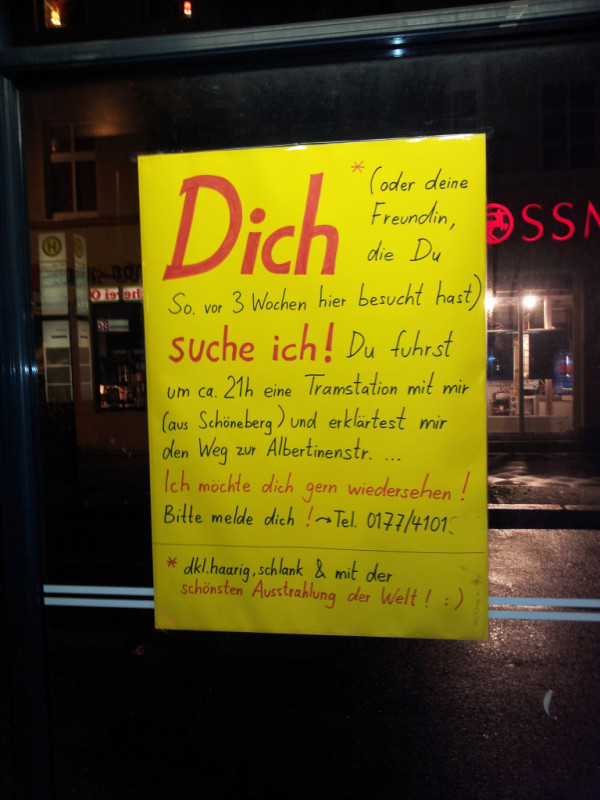 Dich * (oder deine
Freundin,
die Du
So. vor 3 Wochen hier besucht hast)
suche ich! Du fuhrst
um ca. 21h eine Tramstation mit mir
(aus Schöneberg) und erklärtest mir
den Weg zur Albertinenstr. ...
Ich möchte dich gern wiedersehen!
Bitte melde dich! → Tel. 0177/4101
* dkl.haarig, schlank & mit der
schönsten Ausstrahlung der Welt! :)
OSSM
H
H